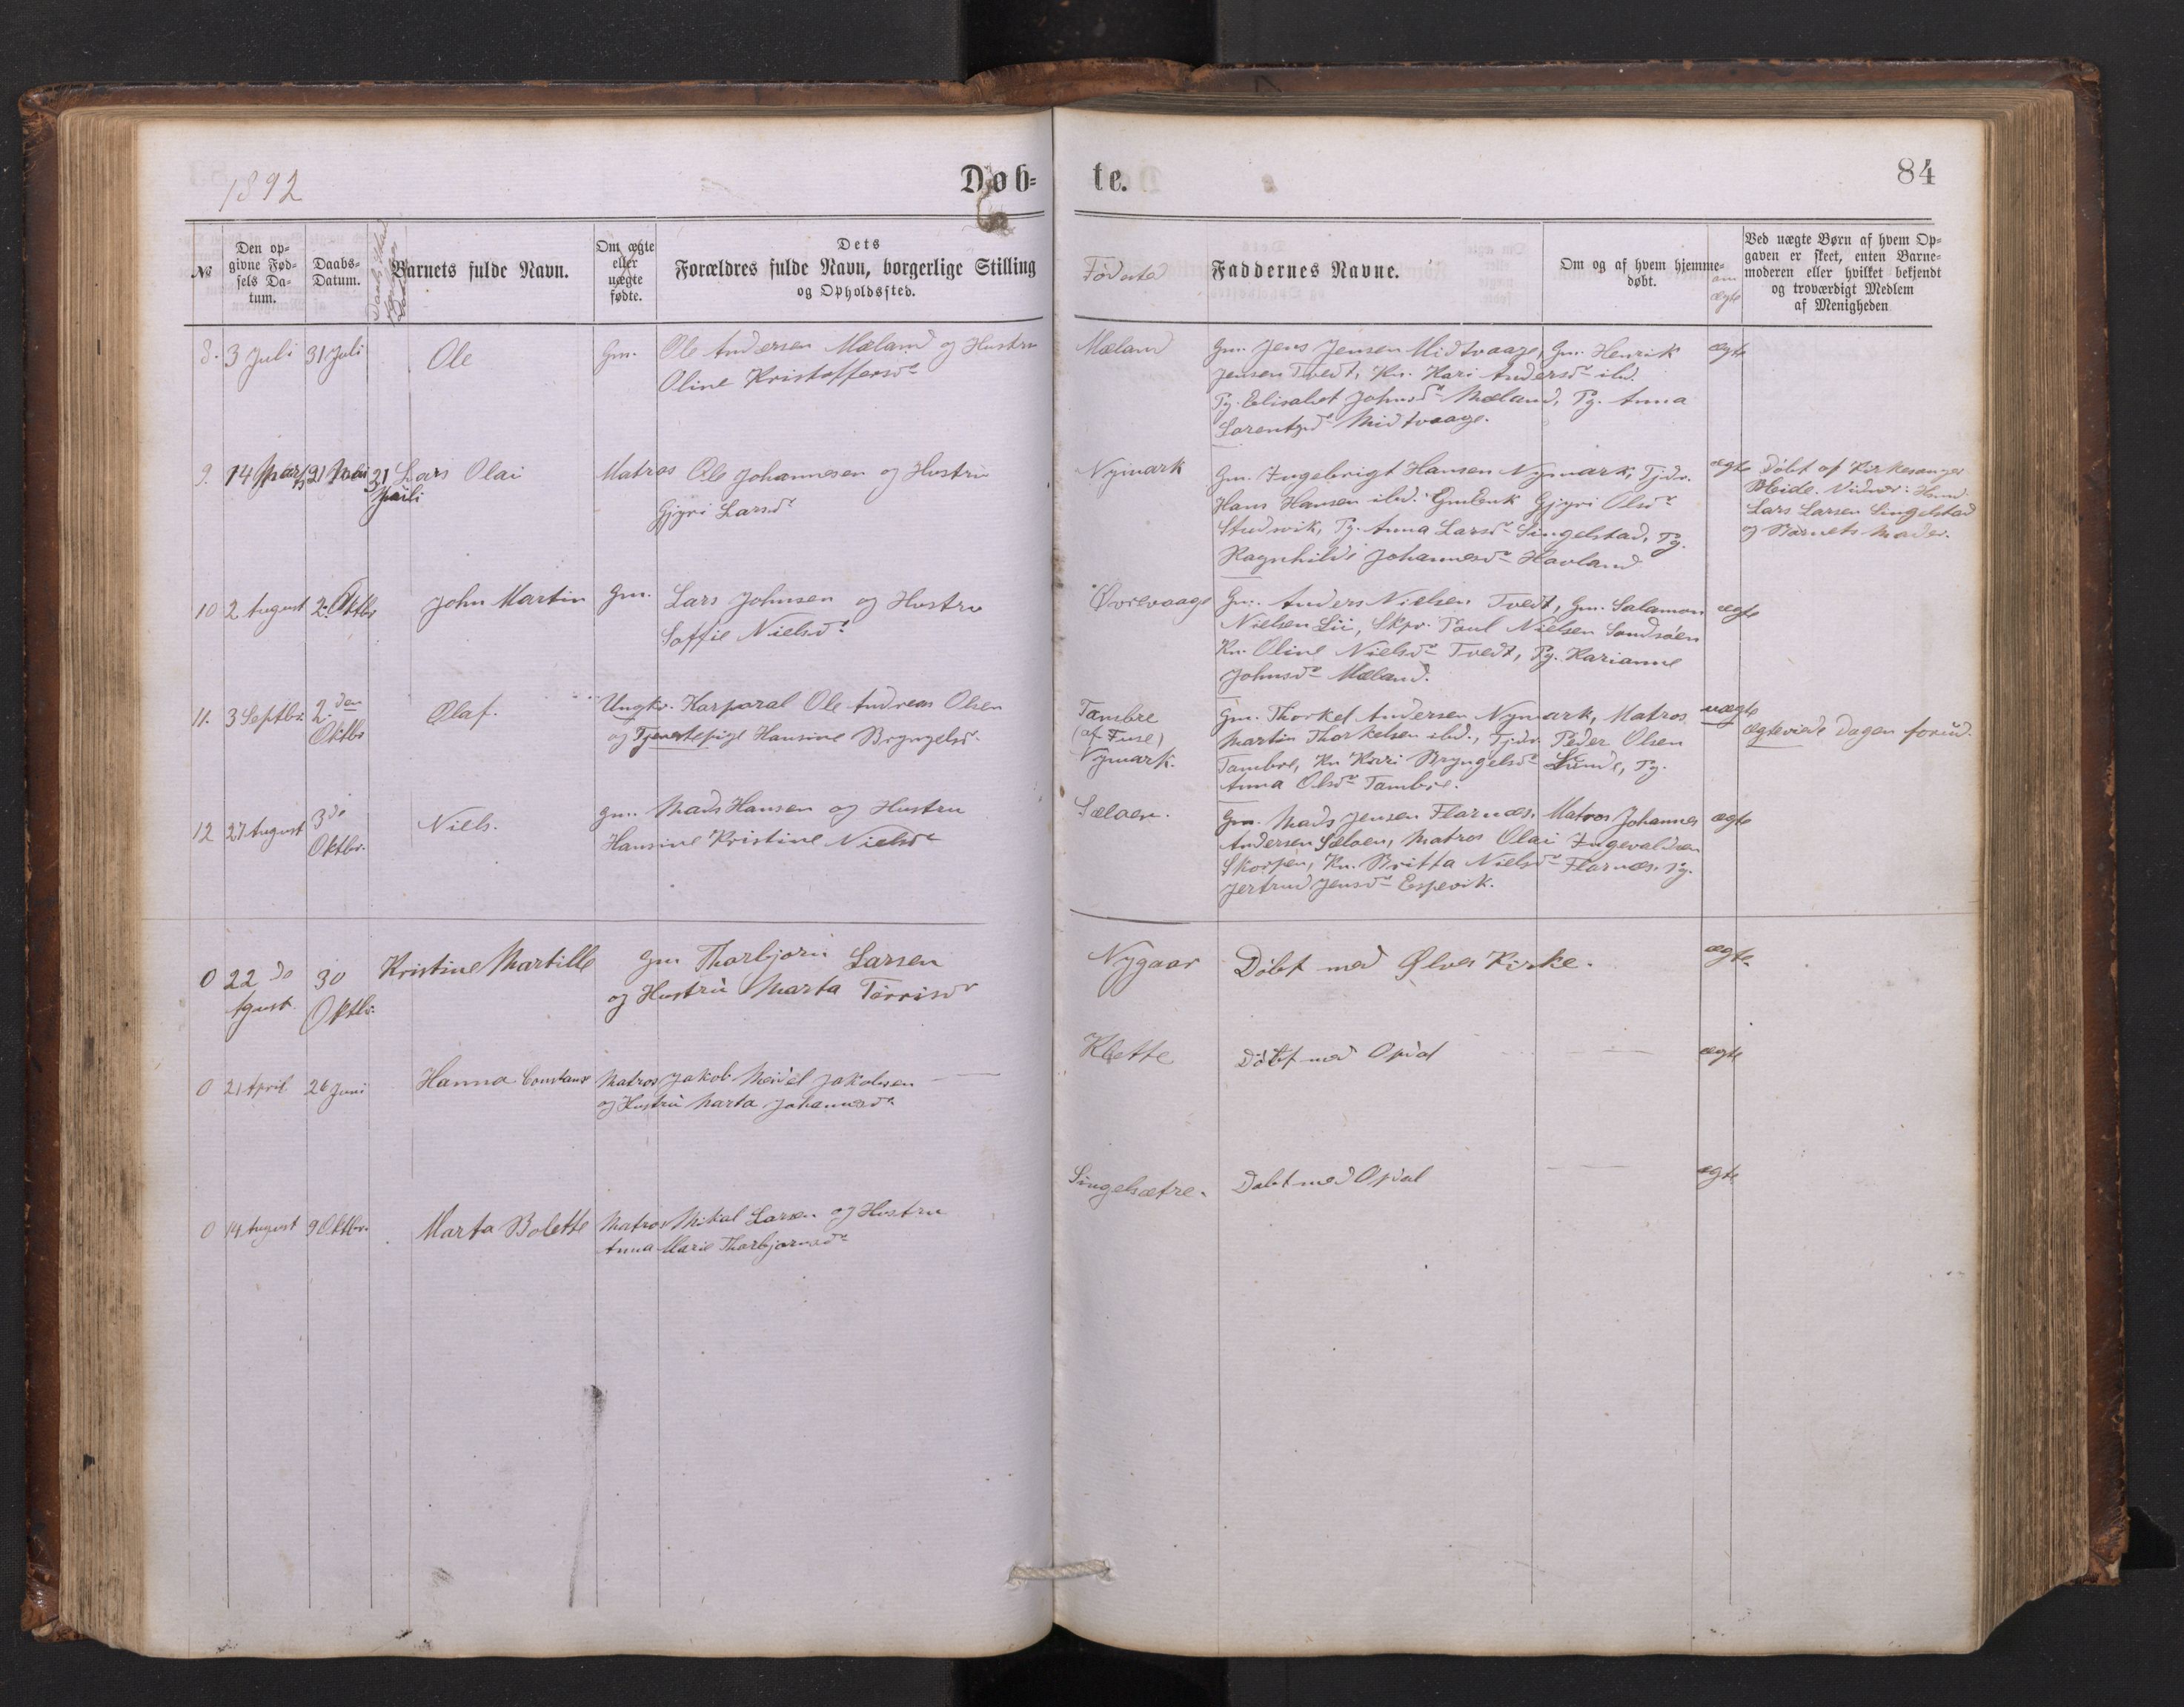 1892
Døb-
te.
84
№
Den op-
givne Fød-
sels Da-
tum.
Daabs-
Datum.
Barnets fulde Navn.
Om ægte
eller
uægte
fødte.
Dets
Forældres fulde Navn, borgerlige Stilling
og Opholdssted.
Födested
Faddernes Navne.
Om og af hvem hjemme-
døbt.
om
ægte
Ved uægte Børn af hvem Op-
gaven er skeet, enten Barne-
moderen eller hvilket bekjendt
og troværdigt Medlem
af Menigheden
8. 3 Juli 31 Juli Ole Gm. Ole Andersen Mæland og Hustru
Oline Kristoffersdr
Mæland Gm. Jens Jensen Midtvaage, Gm. Henrik ægte
Jensen Tvedt, Kn. Kari Andersdr ibd.
Pg. Elisabet Johnsdr Mæland, Pg. Anna
Lorentzdr Midtvaage.
9. 14 Marts 21 21 Lars Olai Matros Ole Johannesen og Hustru
Gjyri Larsdr
Nymark Gm. Ingebrigt Hansen Nymark, Tjdr. ægte Döbt af Kirkesanger
Hans Hansen ibd. GmEnk Gjyri Olsdr Heide. Vidner:
Studsvik, Pg. Anna Larsdr Singelstad, Pg. Lars Larsen Singelstad
Ragnhilde Johannesdr Havland og Barnets Moder.
10 2 August 2. Oktbr John Martin Gm. Lars Johnsen og Hustru
Soffie Nielsdr
Øvrevaage Gm. Anders Nielsen Tvedt, Gm. Salamon ægte
Nielsen Lii, Skpr. Paul Nielsen Sandsöen
Kn. Oline Nielsdr Tvedt, Pg. Karianne
Johnsdr Mæland.
11. 3 Septbr. 2. den
Oktbr Olaf. Ungkr. Korporal Ole Andreas Olsen
og Tjenestepige Hansine Bryngelsdr
Tambre
(af Fuse)
Nymark.
Gm. Thorkel Andersen Nymark, Matros uægte
Martin Thorkelsen ibd., Tjdr. Peder Olsen Ægteviede Dagen forud.
Tambre, Kn Kari Bryngelsdr Lunde, Pg.
Anna Olsdr Tambre.
12 27 August 3 die
Oktbr. Niels. Gm. Mads Hansen og Hustru
Hansine Kristine Nielsdr
Sæløen. Gm. Mads Jensen Flornæs, Matros Johannes ægte
Andersen Sæløen, Matros Olai Ingevaldsen
Skorpen, Kn. Britta Nielsdr Flornæs, Pg.
Jertrud Jensdr Espevik.
0 22 de
Agust. 30
Oktbr. Kristine Martille Gm Thorbjörn Larsen
og Hustru Marta Törrisdr
Nygaar Döbt med Ølves Kirke. ægte.
0 21 April 26 Juni Hanna Constanse Matros Jakob Meidel Jakobsen
og Hustru Marta Johannesdr
Klette Döbt med Opdal ægte
0 14 August 9 Oktbr. Marta Bolette Matros Mikal Larsen og Hustru
Anna Marie Thorbjornsdr
Singelsætre. Döbt med Opdal ægte